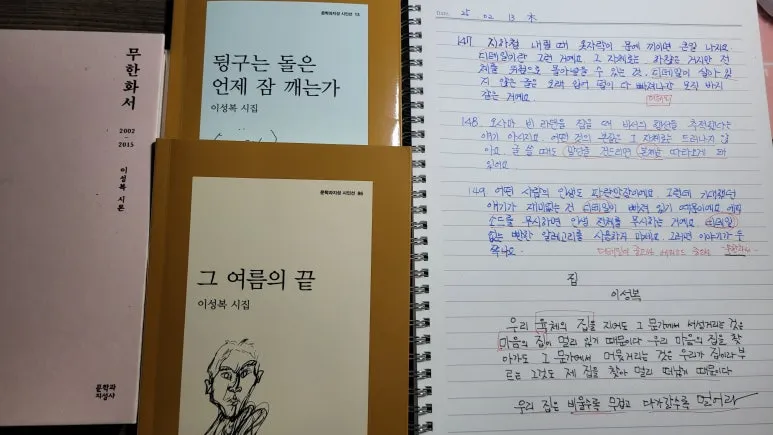 무한화서
2002
-
2015
이성복 시론
문학과
지성사
문학과지성 시인선 13
뒹구는 돌은
언제 잠 깨는가
이성복 시집
문학과지성 시인선 86
그 여름의 끝
이성복 시집
25 02 13 木
147. 지하철 내릴 때 옷자락이 문에 끼이면 큰일 나지요.
디테일이란 그런 거예요. 그 자체로는 하찮은 거지만 전
체를 위험으로 몰아넣을 수 있는 것. 디테일이 살아 있
지 않은 글은 오래 입어 털이 다 빠져나간 모직 바지
같은 거예요.
디테일
148. 오사마 빈 라덴을 잡을 때 비서의 핸드폰을 추적했다는
얘기 아시지요. 어떤 것의 본질은 그 자체로는 드러나지 않
아요. 글 쓸 때도 말단을 건드리면 본체는 따라오게 돼
있어요.
149. 어떤 사람의 인생도 파란만장이에요. 그런데 기대했던
얘기가 재미없는 것 디테일이 빠져 있기 때문이에요. 에피
소드를 무시하면 인생 전체를 무시하는 거예요. 디테일
없는 뻔한 알레고리를 사용하지 마세요. 그러면 이야기가
집
이성복
우리 육체의 집을 지어도 그 문가에서 서성거리는 것은
마음의 집이 멀리 있기 때문이다. 우리 마음의 집을 찾
아가도 그 문가에서 머뭇거리는 것은 우리가 집이라 부
르는 그것도 제 집을 찾아 멀리 떠났기 때문이다
우리 집은 비울수록 무겁고 다가갈수록 멀어라